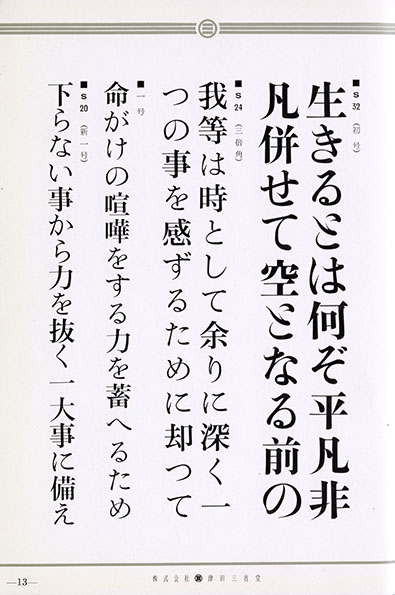 ■S32（初号）
生きるとは何ぞ平凡非
凡併せて空となる前の
■S24（三倍角）
我等は時として余りに深く一
つの事を感ずるために却つて
■一号
命がけの喧嘩をする力を蓄へるため
■S20（新一号）
下らない事から力を抜く一大事に備え
株式会社 津田三省堂
—13—